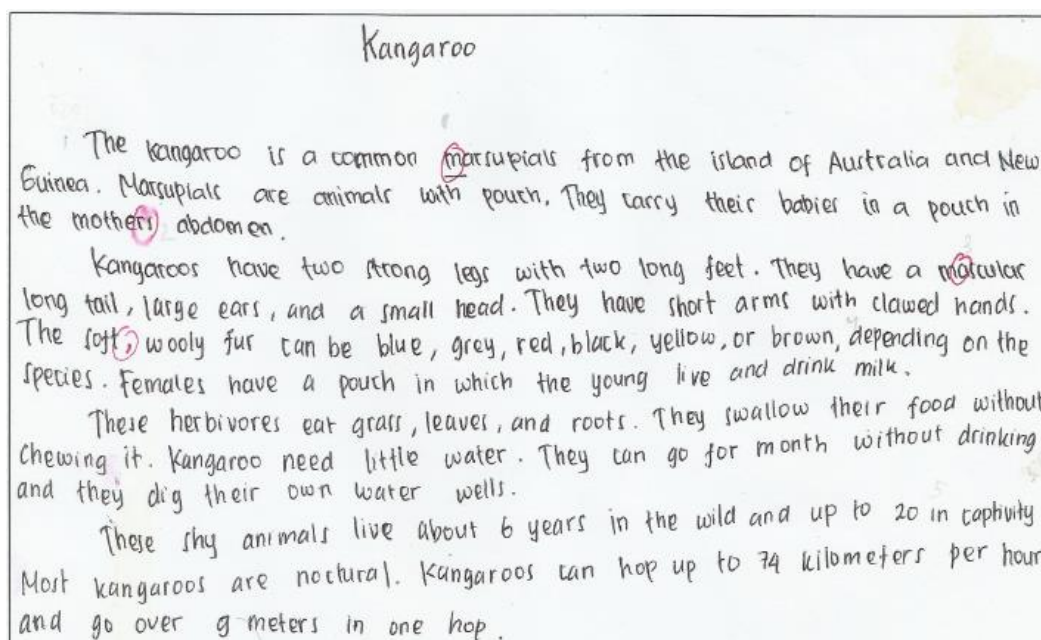 Kangaroo
The kangaroo is a common marsupials from the island of Australia and New
Guinea. Marsupials are animals with pouch. They carry their babies in a pouch in
the mothers abdomen.
Kangaroos have two strong legs with two long feet. They have a mascular
long tail, large ears, and a small head. They have short arms with clawed hands.
The soft, wooly fur can be blue, grey, red, black, yellow, or brown, depending on the
species. Females have a pouch in which the young live and drink milk.
These herbivores eat grass, leaves, and roots. They swallow their food without
chewing it. Kangaroo need little water. They can go for month without drinking
and they dig their own water wells.
These shy animals live about 6 years in the wild and up to 20 in captivity
Most kangaroos are noctural. Kangaroos can hop up to 74 kilometers per hour
and go over 9 meters in one hop.